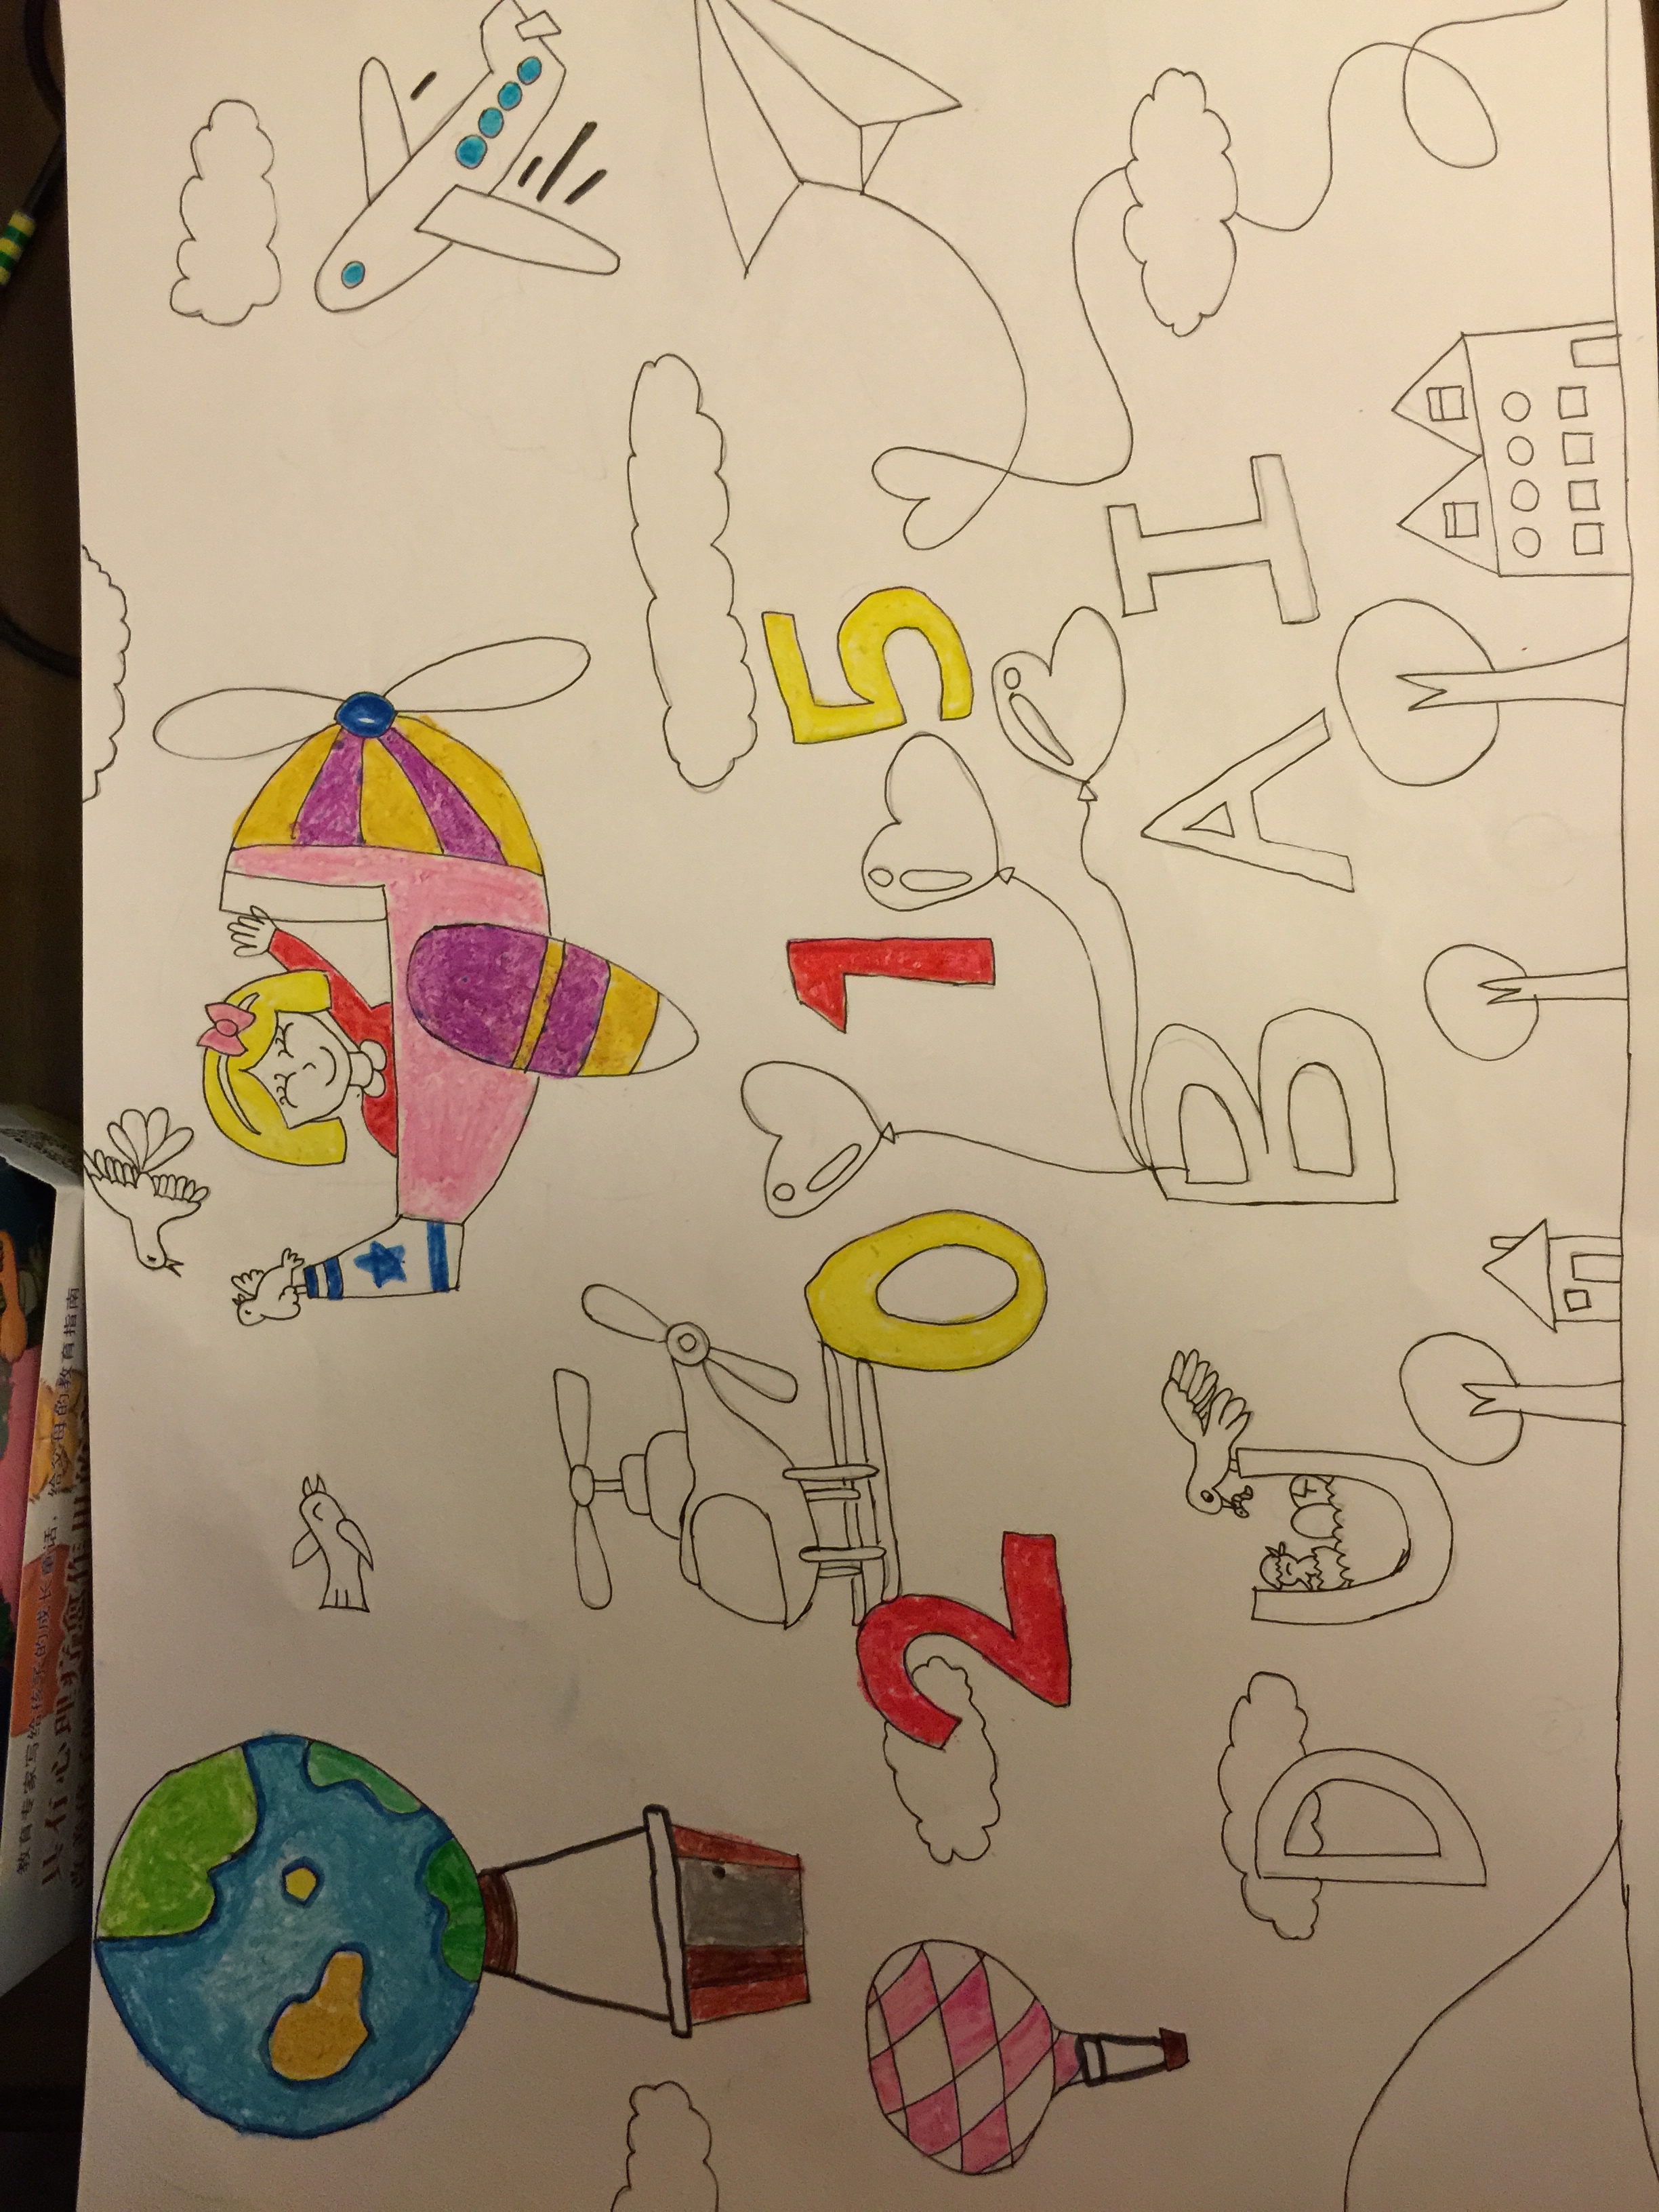 2015
DUBAI
教育专家写给孩子的成长童话，给父母的教育指南